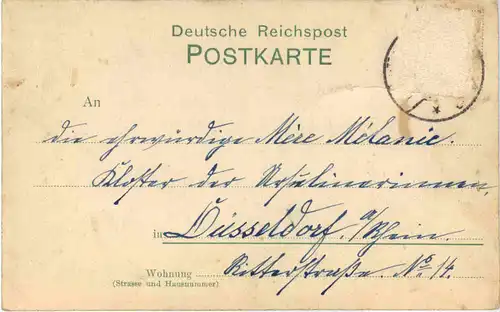 Deutsche Reichspost
POSTKARTE
An
die ehrwürdige Mère Mélanie.
Kloster der Ursulinerinnen,
in Düsseldorf. a/Rhein.
Wohnung Ritterstraße. No 14.
(Strasse und Hausnummer)